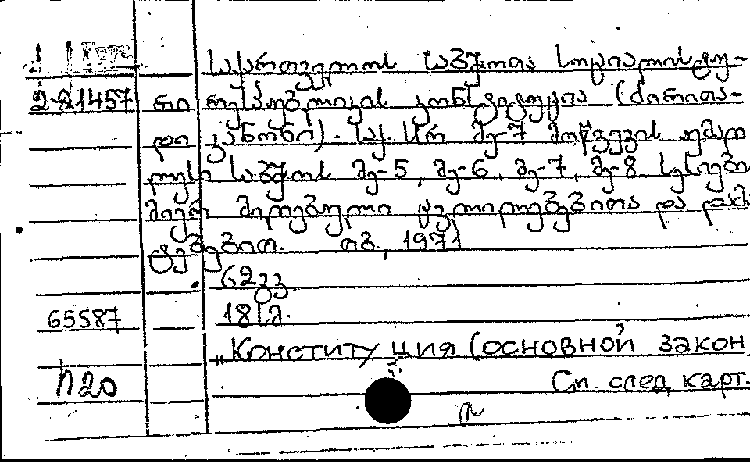 საქართველოს საბჭოთა სოციალისტუ-
2-21457 რი რესპუბლიკის კონსტიტუცია (ძირითა-
დი კანონი). საქ. სსრ მე-7 მოწვევის უმაღ
ლესი საბჭოს მე-5, მე-6, მე-7, მე-8 სესიების
მიერ მიღებული ცვლილებებითა და დამა
ტებებით. თბ., 1971
62გვ.
65587 18კ.
„Конституция (основной закон
См. след. карт.